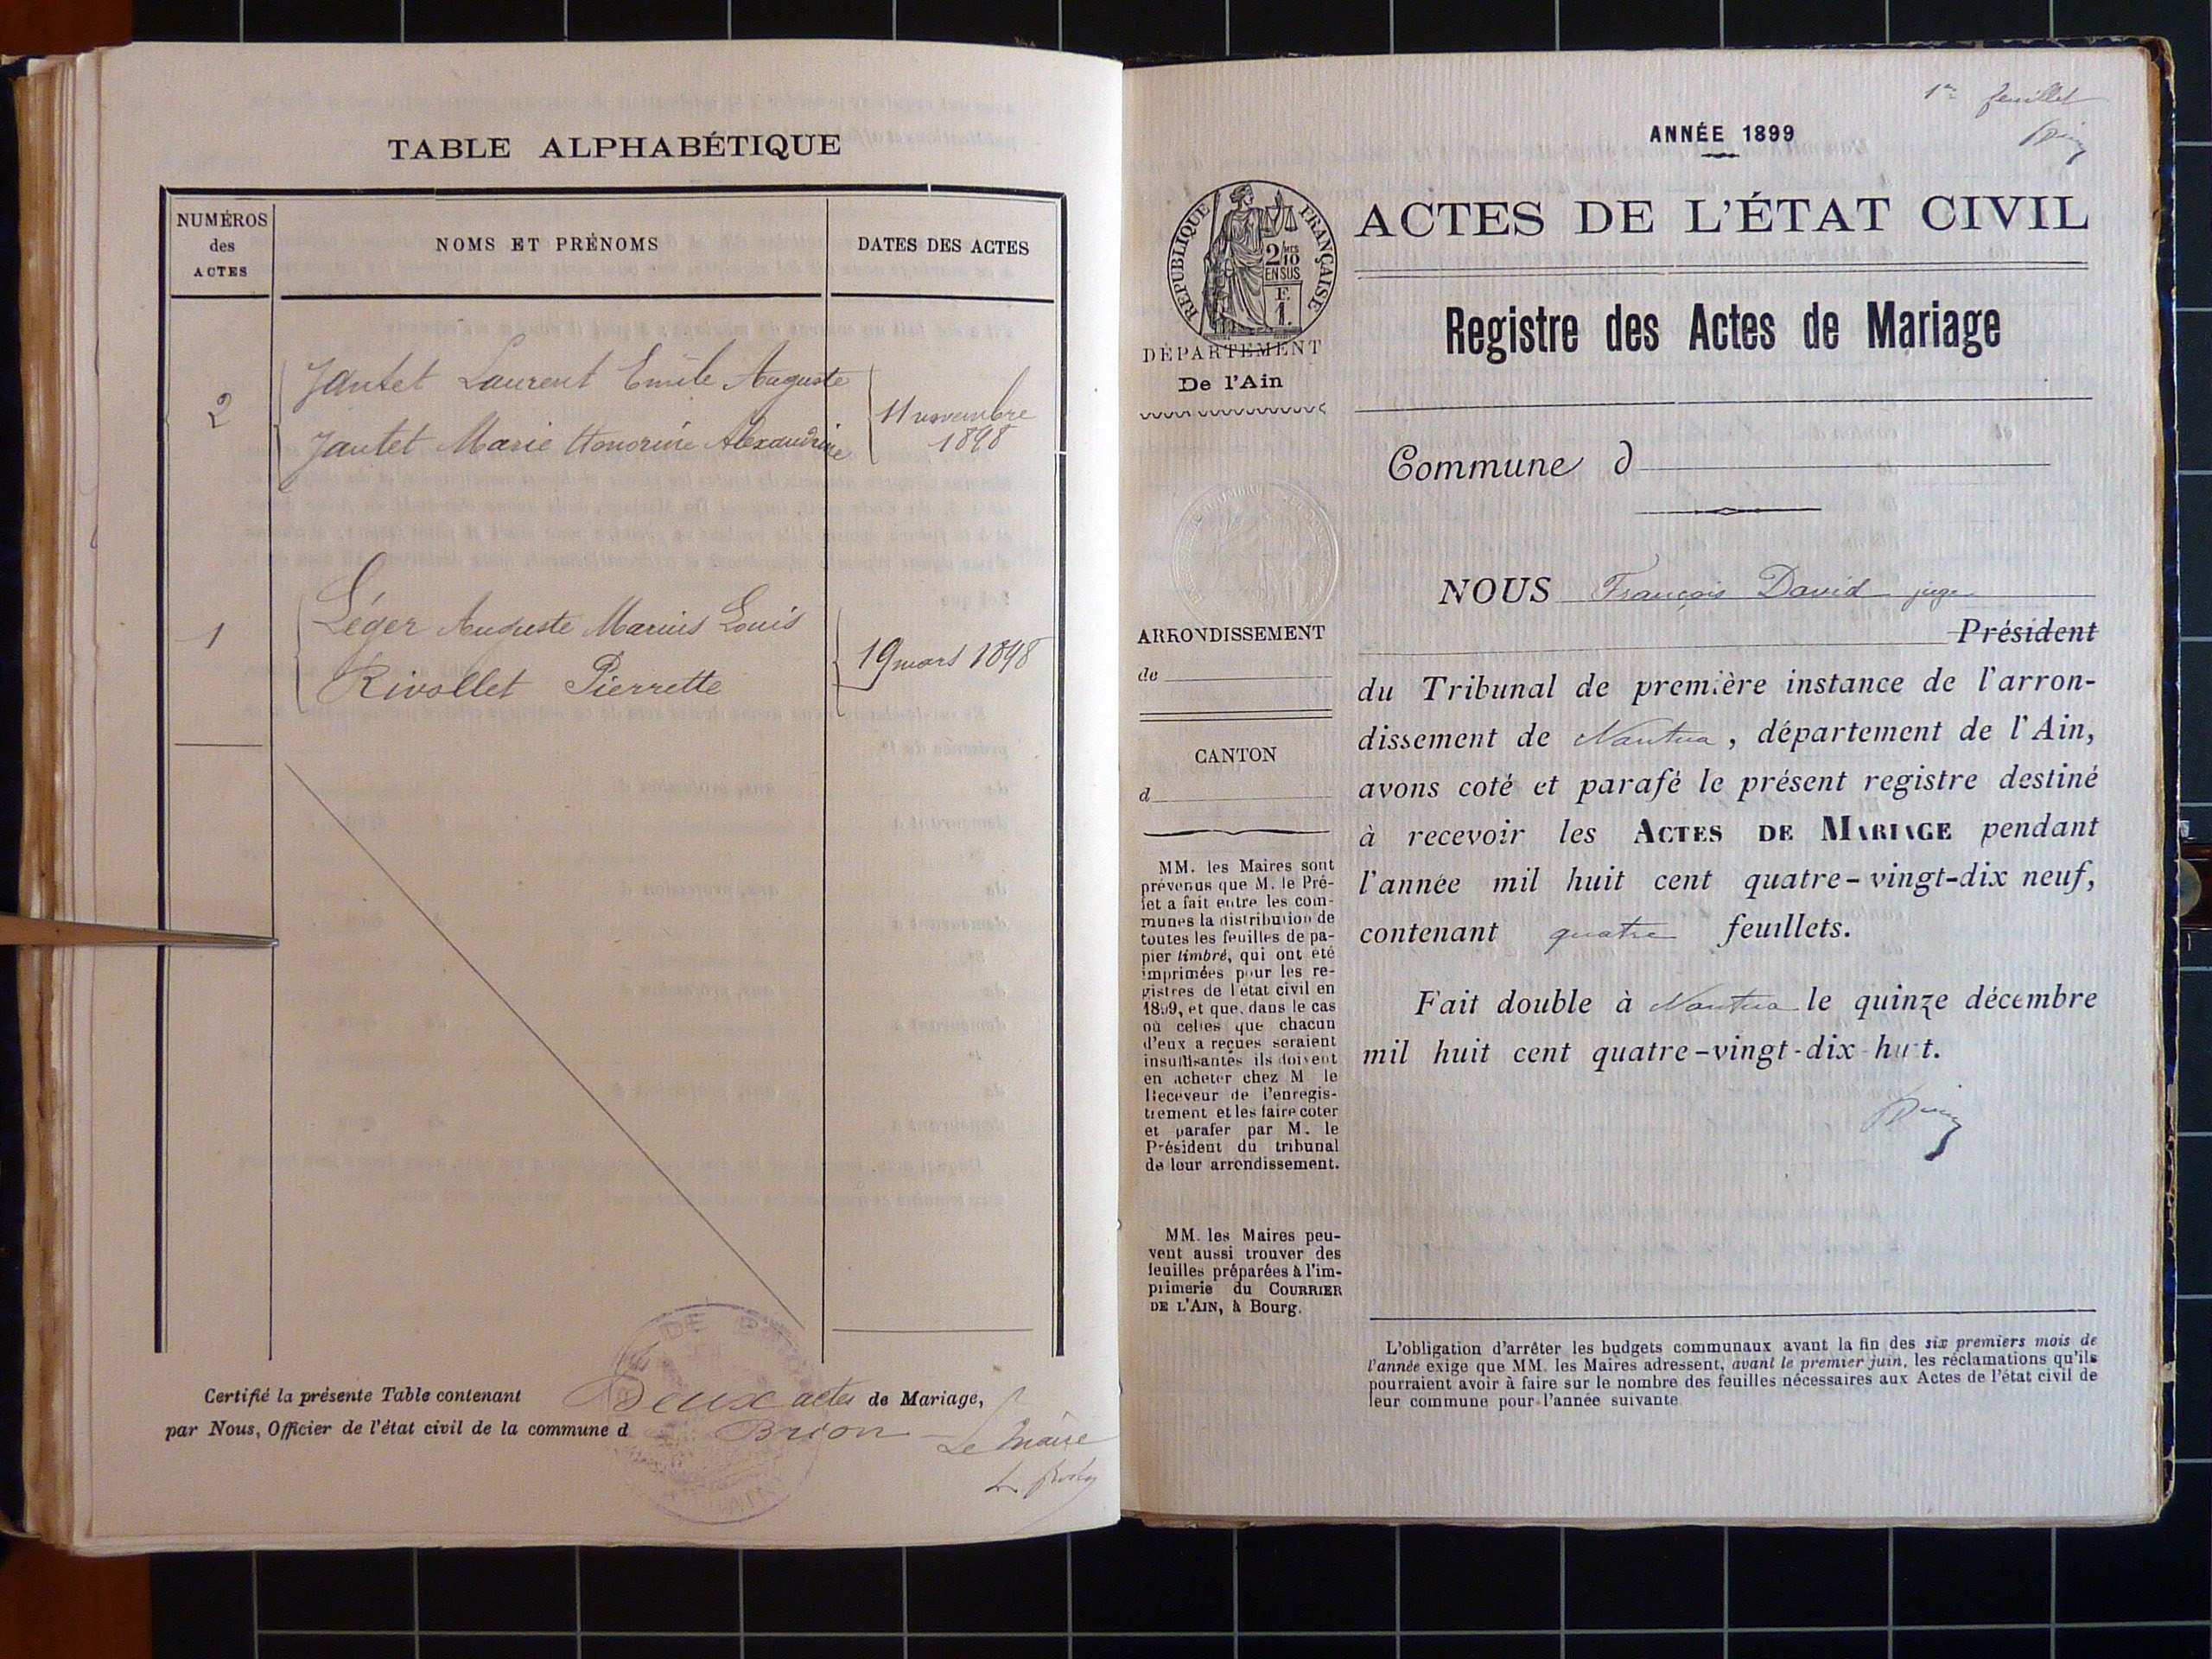 TABLE ALPHABÉTIQUE
NUMÉROS
des
ACTES
NOMS ET PRÉNOMS
DATES DES ACTES
2
Jantet Laurent Emile Auguste
Jantet Marie Honorine Alexandrine
11 novembre
1898
1
Léger Auguste Marius Louis
Rivollet Pierrette
19 mars 1898
Certifié la présente Table contenant Deux actes de Mariage,
par Nous, Officier de l'état civil de la commune d Brion
Le Maire
1er feuillet
ANNÉE 1899
RÉPUBLIQUE FRANÇAISE
2/10
EN SUS
ACTES DE L'ÉTAT CIVIL
Registre des Actes de Mariage
DÉPARTEMENT
De l'Ain
Commune d
ARRONDISSEMENT
de
CANTON
d
MM. les Maires sont
prévenus que M. le Pré-
fet a fait entre les com-
munes la distribution de
toutes les feuilles de pa-
pier timbré, qui ont été
imprimées pour les re-
gistres de l'état civil en
1899, et que, dans le cas
où celles que chacun
d'eux a reçues seraient
insuffisantes ils doivent
en acheter chez M le
Receveur de l'enregis-
trement et les faire coter
et parafer par M. le
Président du tribunal
de leur arrondissement.
MM. les Maires peu-
vent aussi trouver des
feuilles préparées à l'im-
primerie du COURRIER
DE L'AIN, à Bourg.
NOUS François David juge
Président
du Tribunal de première instance de l'arron-
dissement de Nantua, département de l'Ain,
avons coté et parafé le présent registre destiné
à recevoir les ACTES DE MARIAGE pendant
l'année mil huit cent quatre-vingt-dix neuf,
contenant quatre feuillets.
Fait double à Nantua le quinze décembre
mil huit cent quatre-vingt-dix-huit.
L'obligation d'arrêter les budgets communaux avant la fin des six premiers mois de
l'année exige que MM. les Maires adressent, avant le premier juin, les réclamations qu'ils
pourraient avoir à faire sur le nombre des feuilles nécessaires aux Actes de l'état civil de
leur commune pour l'année suivante